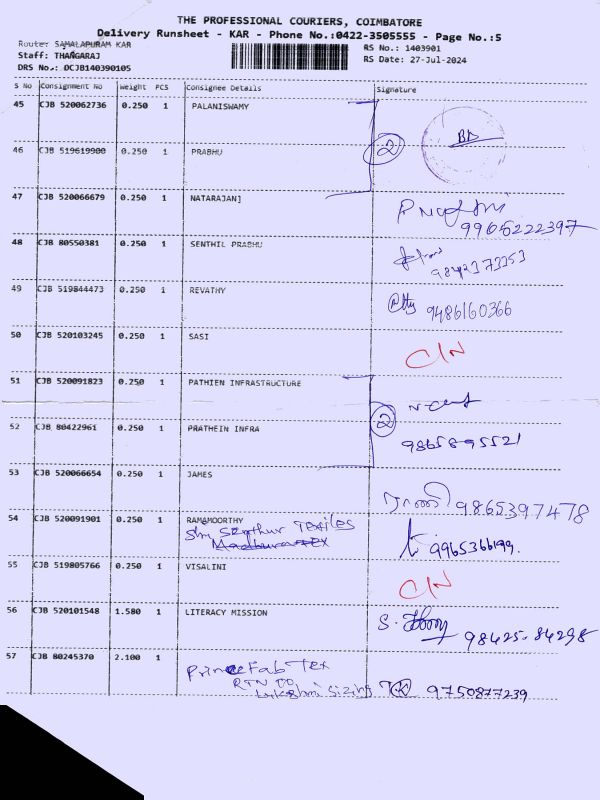 THE PROFESSIONAL COURIERS, COIMBATORE
Delivery Runsheet - KAR - Phone No.:0422-3505555 - Page No.:5
Route: SAMALAPURAM KAR
RS No.: 1403901
Staff: THANGARAJ
RS Date: 27-Jul-2024
DRS No.: DCJB140390105
S No Consignment No Weight PCS Consignee Details Signature
45 CJB 520062736 0.250 1 PALANISWAMY
46 CJB 519619900 0.250 1 PRABHU
2
47 CJB 520066679 0.250 1 NATARAJAN]
48 CJB 80550381 0.250 1 SENTHIL PRABHU
49 CJB 519844473 0.250 1 REVATHY 9486160366
50 CJB 520103245 0.250 1 SASI C/N
51 CJB 520091823 0.250 1 PATHIEN INFRASTRUCTURE
2
52 CJB 80422961 0.250 1 PRATHEIN INFRA 9865895521
53 CJB 520066654 0.250 1 JAMES 9865397478
54 CJB 520091901 0.250 1 RAMAMOORTHY
Textiles
55 CJB 519805766 0.250 1 VISALINI C/N
56 CJB 520101548 1.580 1 LITERACY MISSION 98425-84298
57 CJB 80245370 2.100 1 Prince Fab Tex
RTN TO
Lakshmi Sizing 9750877239